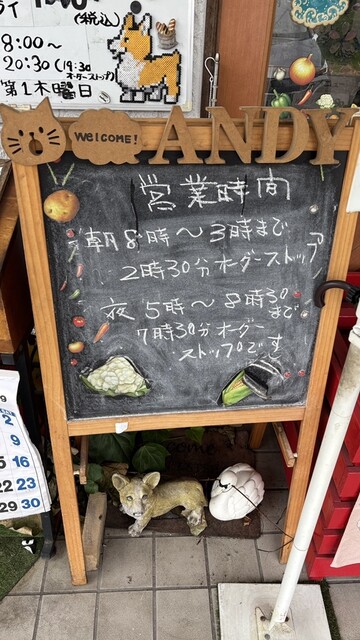 (税込)
8:00〜
20:30(19:30
オーダーストップ)
第1木曜日
welcome!
ANDY
営業時間
朝8時〜3時まで
2時30分オーダーストップ
夜5時〜8時30
まで
7時30分オーダー
ストップです
9
2
9
15 16
22 23
29 30